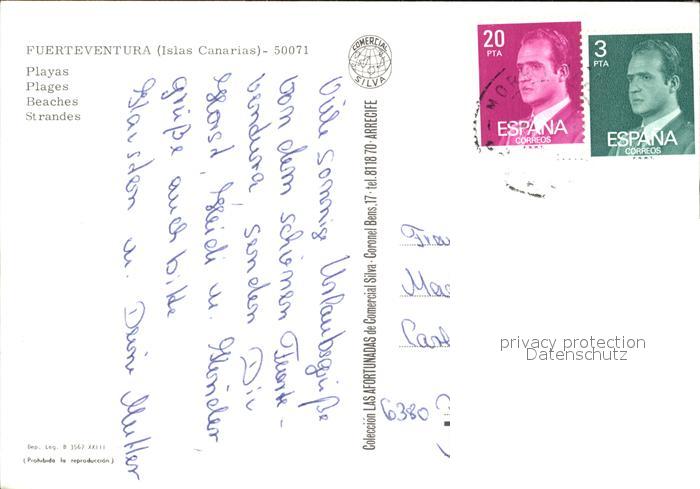 FUERTEVENTURA (Islas Canarias) - 50071
Playas
Plages
Beaches
Strandes
COMERCIAL
SILVA
20
PTA
ESPAÑA
CORREOS
F.N.M.T.
3
PTA
ESPAÑA
CORREOS
F.N.M.T.
Viele sonnige Urlaubsgrüße
von dem schönen Fuerte-
ventura, senden Dir
Horst, Heidi u. Kinder,
grüße auch bitte
Karsten u. Deine Mutter
Colección LAS AFORTUNADAS de Comercial Silva · Coronel Bens, 17 · tel. 81 18 70 · ARRECIFE
Frau
6380
privacy protection
Datenschutz
Dep. Leg. B 3567 XXIII
(Prohibida la reproducción)